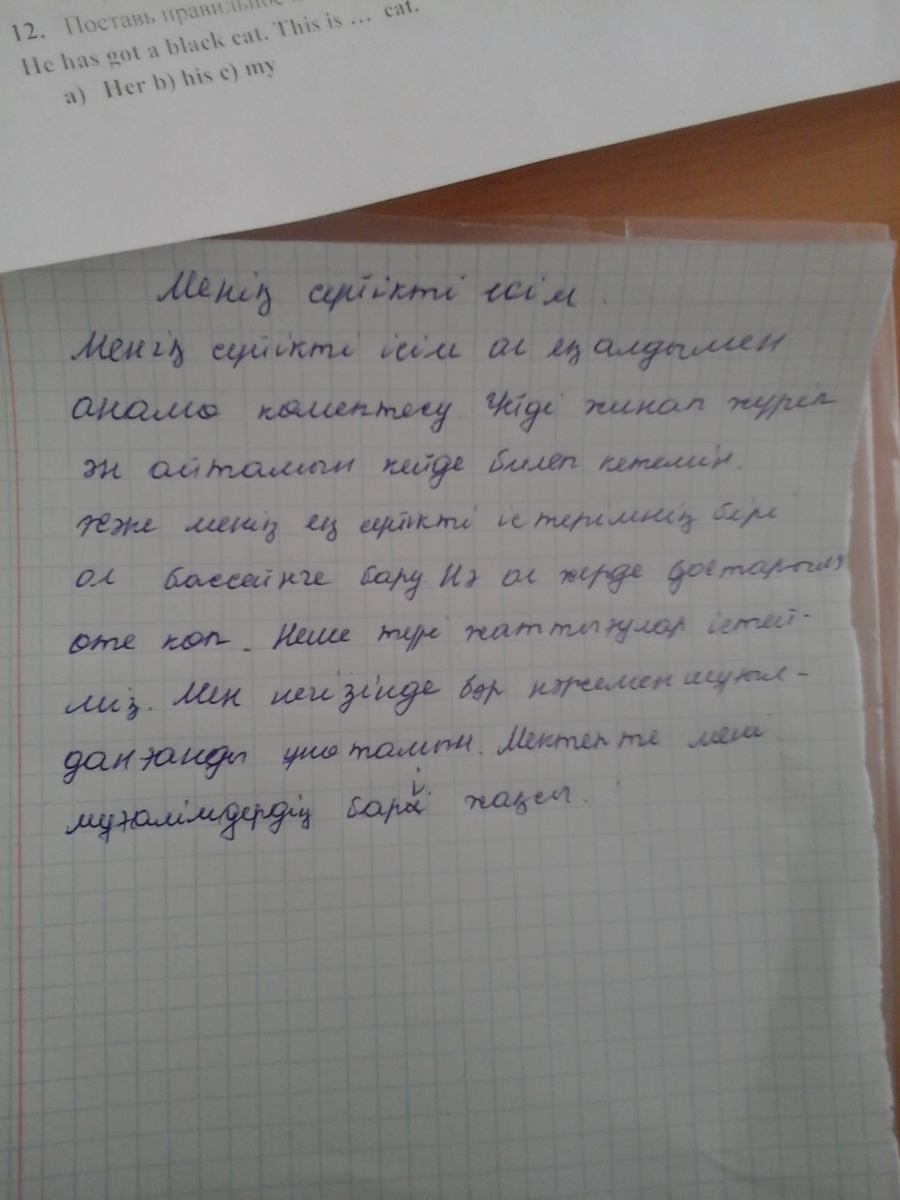 12. Поставь правильное
He has got a black cat. This is ... cat.
a) Her b) his c) my
Менің сүйікті ісім
Менің сүйікті ісім ол ең алдымен
анама көмектесу Үйді жинап жүріп
ән айтамын кейде билеп кетемін.
Және менің ең сүйікті істерімнің бірі
ол бассейнге бару Ия ол жерде достарымыз
өте көп. Неше түрі жаттығулар істей-
міз. Мен негізінде бәр нәжемен шұғыл-
данғанды ұнатамын. Мектепте мені
мұғалімдердің барі жақсы.